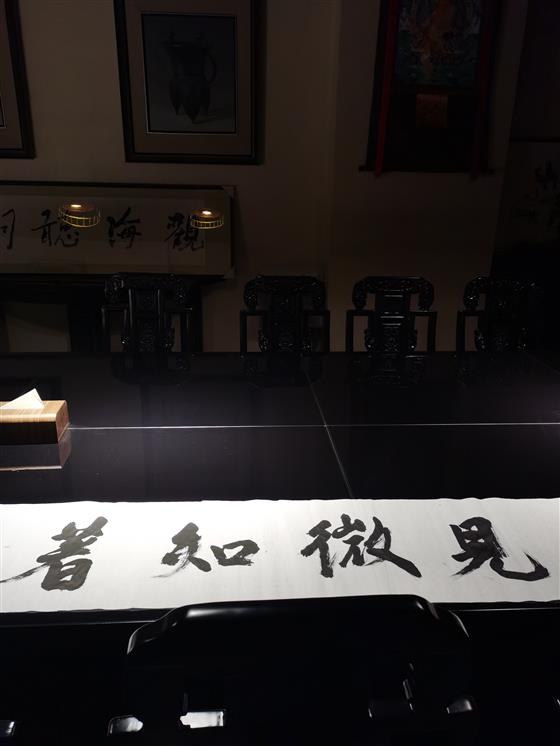 觀海聽
見微知著